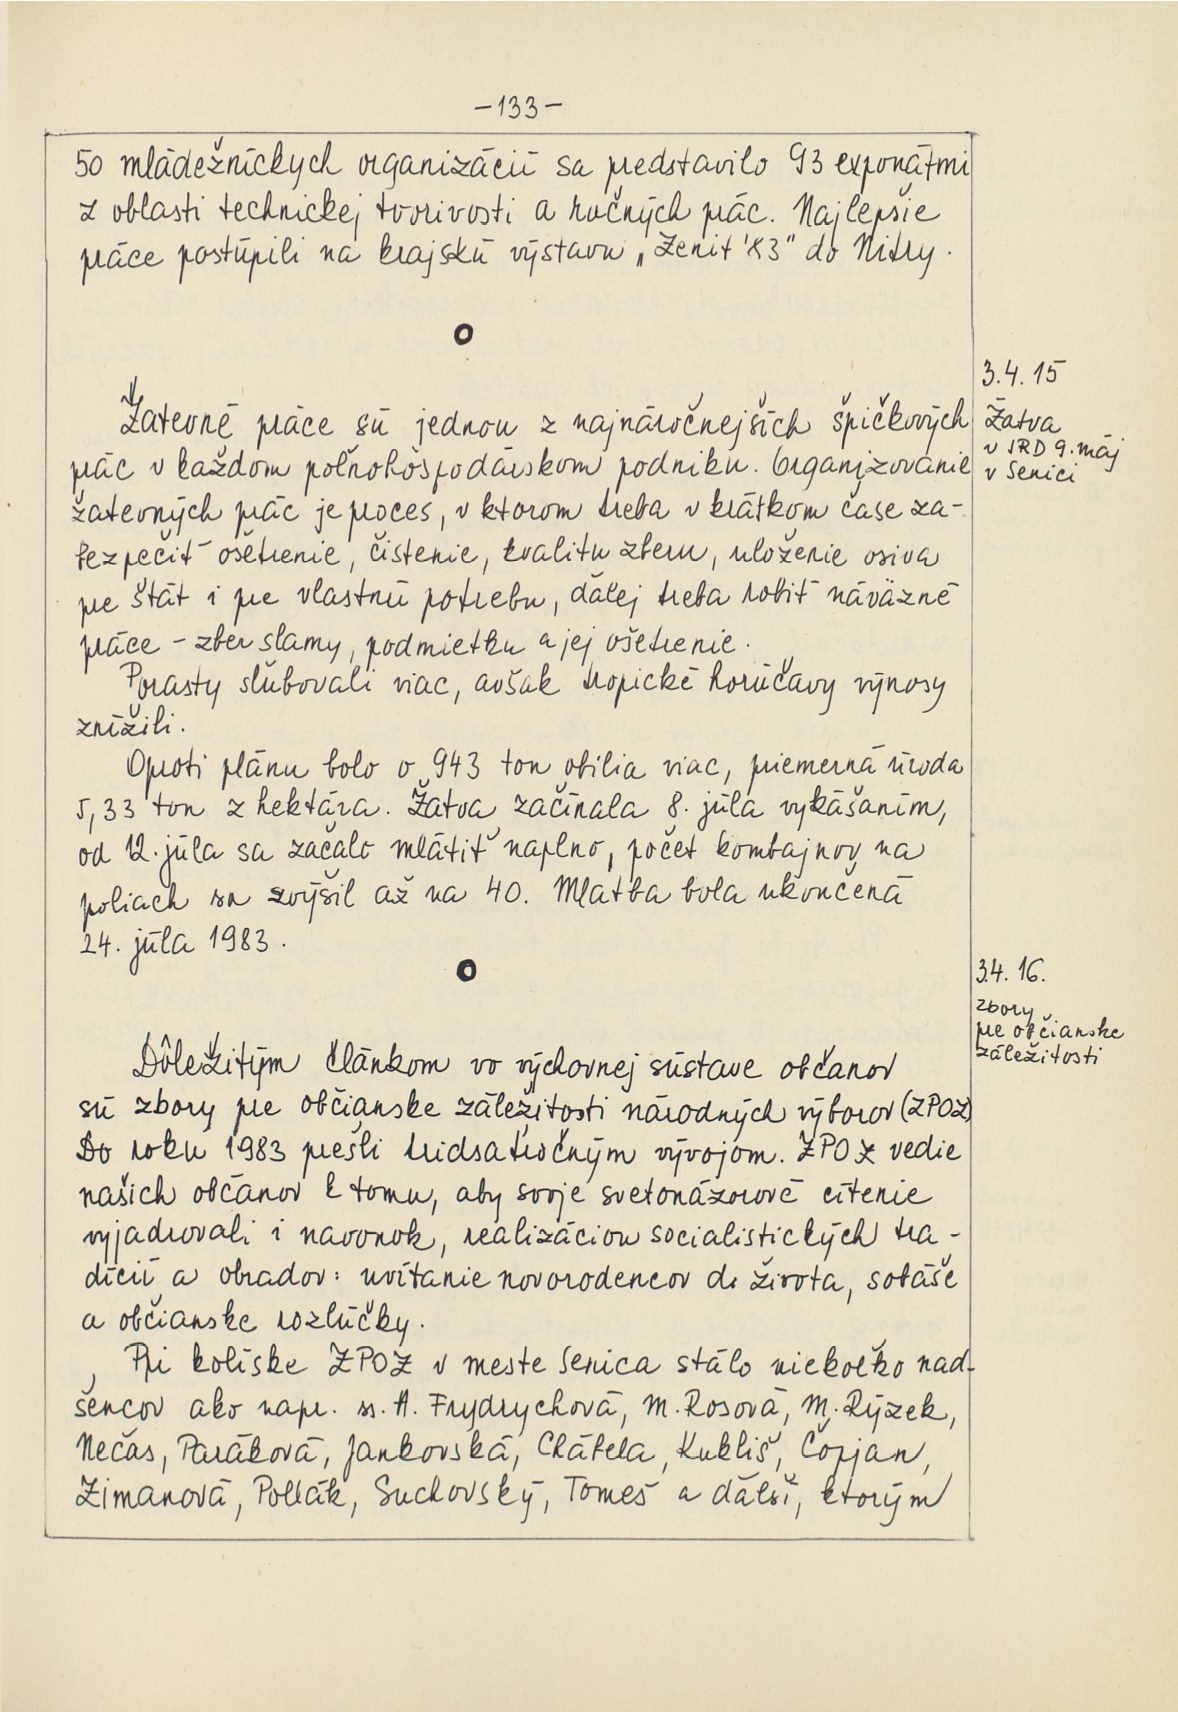 -133-
50 mládežníckych organizácií sa predstavilo 93 exponátmi
z oblasti technickej tvorivosti a ručných prác. Najlepšie
práce postúpili na krajskú výstavu „Zenit '83" do Nitry.
o
3.4.15
Žatva
v JRD 9. máj
v Senici
Žatevné práce sú jednou z najnáročnejších špičkových
prác v každom poľnohospodárskom podniku. Organizovanie
žatevných prác je proces, v ktorom treba v krátkom čase za-
bezpečiť ošetrenie, čistenie, kvalitu zberu, uloženie osiva
pre štát i pre vlastnú potrebu, ďalej treba robiť náväzné
práce - zber slamy, podmietku a jej ošetrenie.
Porasty sľubovali viac, avšak tropické horúčavy výnosy
znížili.
Oproti plánu bolo o 943 ton obilia viac, priemerná úroda
5,33 ton z hektára. Žatva začínala 8. júla vykášaním,
od 12. júla sa začalo mlátiť naplno, počet kombajnov na
poliach sa zvýšil až na 40. Mlatba bola ukončená
24. júla 1983.
o
3.4.16.
Zbory
pre občianske
záležitosti
Dôležitým článkom vo výchovnej sústave občanov
sú zbory pre občianske záležitosti národných výborov (ZPOZ)
Do roku 1983 prešli tridsaťročným vývojom. ZPOZ vedie
našich občanov k tomu, aby svoje svetonázorové cítenie
vyjadrovali i navonok, realizáciou socialistických tra-
dícií a obradov: uvítanie novorodencov do života, sobáše
a občianske rozlúčky.
Pri kolíske ZPOZ v meste Senica stálo niekoľko nad-
šencov ako napr. ss. A. Frydrychová, M. Rosová, M. Rýzek,
Nečas, Paráková, Jankovská, Chábela, Kukliš, Čorjan,
Zimanová, Pollák, Suchovský, Tomeš a ďalší, ktorým